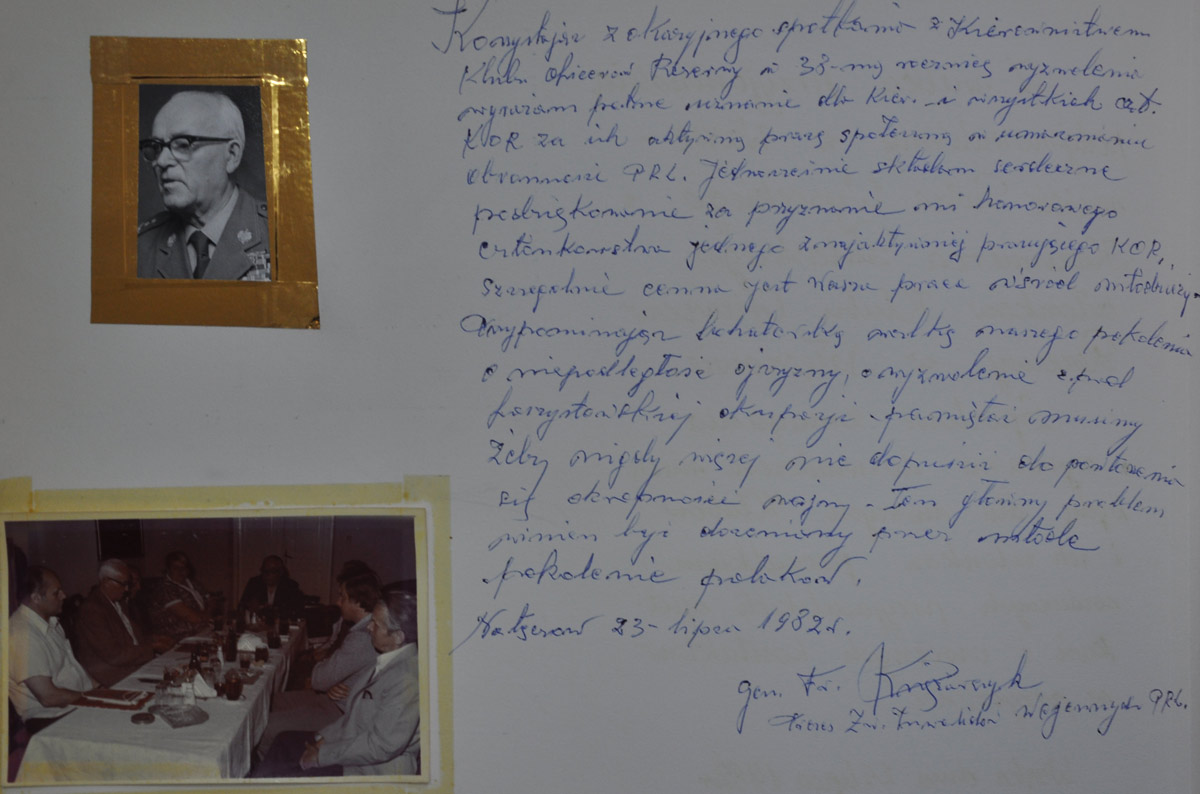 Korzystając z okazyjnego spotkania z Kierownictwem
Klubu Oficerów Rezerwy w 38-mą rocznicę wyzwolenia
wyrażam pełne uznanie dla Kier. i wszystkich czł.
KOR za ich aktywną pracę społeczną w umacnianiu
obronności PRL. Jednocześnie składam serdeczne
podziękowanie za przyznanie mi honorowego
członkowstwa jednego z najaktywniej pracującego KOR.
Szczególnie cenna jest Wasza praca wśród młodzieży.
Przypominając bohaterską walkę naszego pokolenia
o niepodległość ojczyzny, o wyzwolenie z pod
faszystowskiej okupacji - pamiętać musimy
żeby nigdy więcej nie dopuścić do powtórzenia
się okropności wojny - Ten główny problem
winien być doceniany przez młode
pokolenie polaków.
23 - lipca 1982 r.
gen. Fr. Księżarczyk
Prezes Zw. Inwalidów Wojennych PRL.